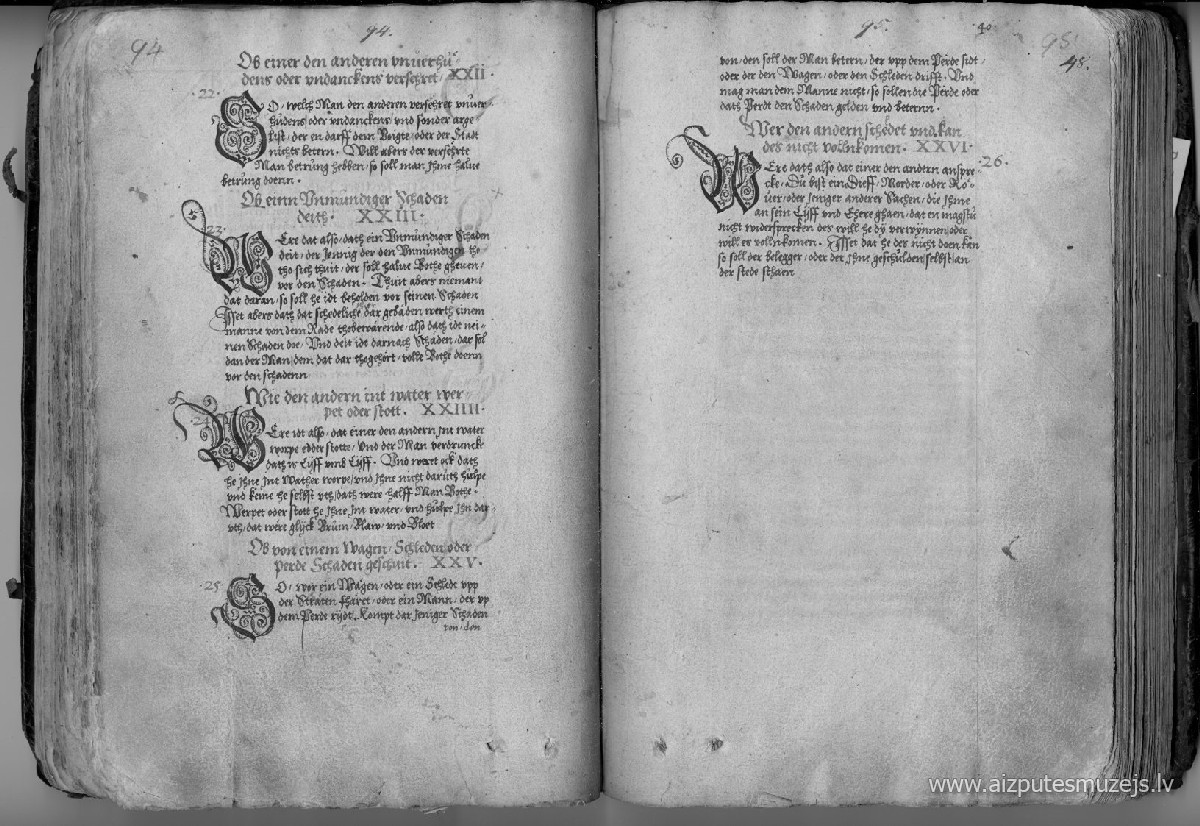 94
94.
Ob einer den anderen vnuerhü-
dens oder vndanckens versehret. XXII
22.
SO, welch Man den anderen versehret vnuer-
hüdens oder vndanckens vnd sonder arge
list, der en darff dem Vogte, oder der Stadt
nichts betern. Will abers der versehrte
Man betrung hebben, so soll man Jhme halue
betrung doenn.
Ob einn Vnmündiger Schaden
deith. XXIII.
23.
WEre dat also, dath ein Vnmündiger Schaden
deit, der Jennig der den Vnmündigen
tho sich thuit, der soll halue Bothe gheuen,
vor den Schaden. Thuit abers niemant
dat daran, so soll he idt beholden vor seinen Schaden
Isset abers dath dat schedeliche dar gebaden werth einem
manne von dem Rade thobewarende, also dath idt nei-
nen Schaden doe, Vnd deit idt darnach Schaden, dar sol
dan der Man, dem dat dar thogehört, volle Bothe doenn
vor den schadenn
Wie den andern int water wer-
pet oder stott. XXIIII.
24
WEre idt also, dat einer den andern Int water
worpe edder stotte, vnd der Man verdruncke
dath is Lyff vmb Lyff. Vnd weret ock dath
he Jhne Int Wather worpe, vnd Jhne nicht daruth hülpe
vnd keme he selbst vth, dath were halff Man Bothe.
Werpet oder stott he Jhne Int water, vnd hülpe Jhn dar-
vth, dat were glyck Brün, Blaw, vnd Bloet
Ob von einem Wagen, Schleden oder
Perde Schaden geschuit. XXV.
25
SO, wor ein Wagen, oder ein Schlede vpp
der Straten fharet, oder ein Mann, der vp
dem Perdt rydt, Kompt dar Jeniger Schaden
von, den
95.
40
95
45.
von, den soll der Man betern, der vpp dem Perde sidt,
oder der den Wagen, oder den Schleden drifft. Vnd
mag man dem Manne nicht, so sollen die Perde oder
dath Perdt den Schaden gelden vnd beternn.
Wer den andern schedet vnd kan
des nicht vollnkomen. XXVI.
26.
WEre dath also dat einer den andern anspre-
cke, Du bist ein Dieff, Morder, oder Ro-
uer, oder Jeniger anderer Sachen, die Jhme
an sein Lyff vnd Ehere ghaen, dat en magstu
nicht widersprecken des will he dy verwynnen oder
will es vollnkomen. Isset dat he des nicht doen kan
so soll der belegger, oder der Jhne geschulden selbst, an
der stede sthaen
www.aizputesmuzejs.lv